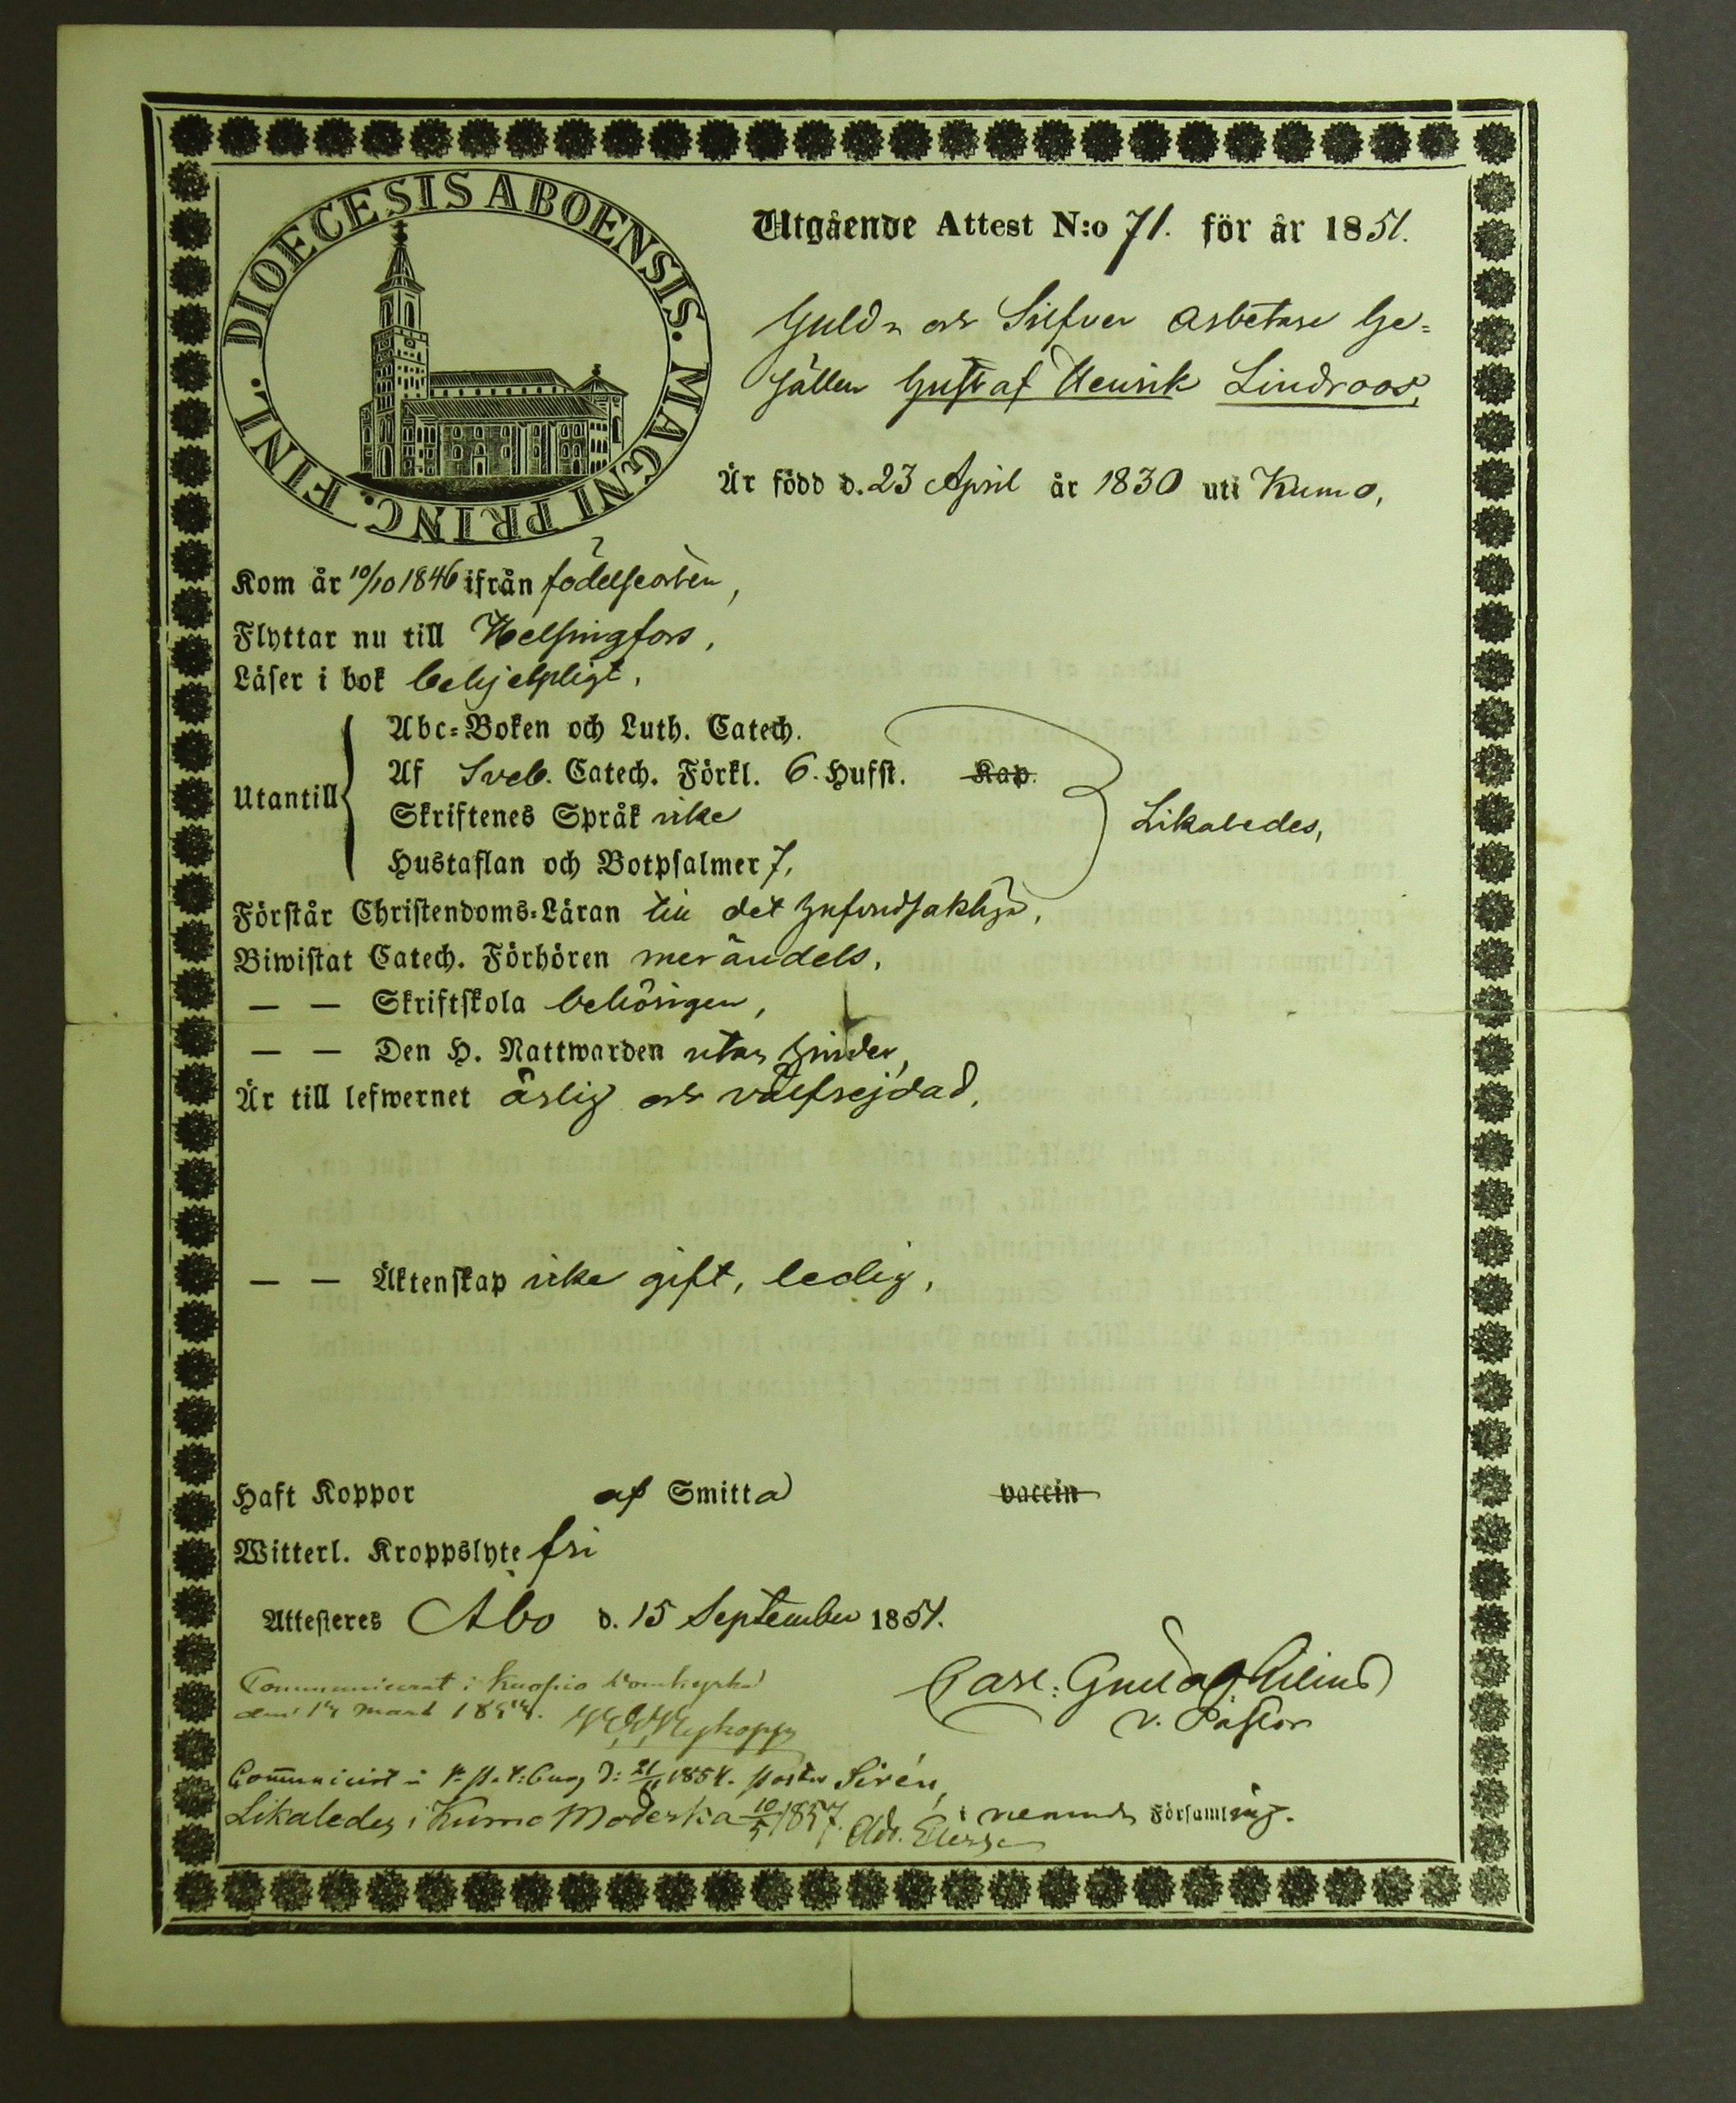 DIOECESIS ABOENSIS. MAGNI PRINC. FINL.
Utgående Attest N:o 71. för år 1851.
Guld- och Silfver arbetare Ge-
sällen Gustaf Henrik Lindroos,
Är född d. 23 April år 1830 uti Kumo,
Kom år 10/10 1846 ifrån födelseorten,
Flyttar nu till Helsingfors,
Läser i bok behjelpligt,
Utantill
Abc-Boken och Luth. Catech.
Af Sveb. Catech. Förkl. 6. Hufst. Kap.
Skriftenes Språk icke
Hustaflan och Botpsalmer 7,
Likaledes,
Förstår Christendoms-Läran till det hufvudsakliga,
Biwistat Catech. Förhören merändels,
— — Skriftskola behörigen,
— — Den H. Nattwarden utan hinder,
Är till lefwernet ärlig och välfrejdad,
— — Äktenskap icke gift, ledig,
Haft Koppor af Smitta vaccin
Witterl. Kroppslyte fri
Attesteras Åbo d. 15 September 1851.
Carl Gustaf
v. Pastor
Communicerat i Kuopio Domkyrka
den Mars
Communicirt i 1854. Pastor Sirén,
i nemnde Församling.
Likaledes i Kumo Moderka 10/5 1857. Adr.